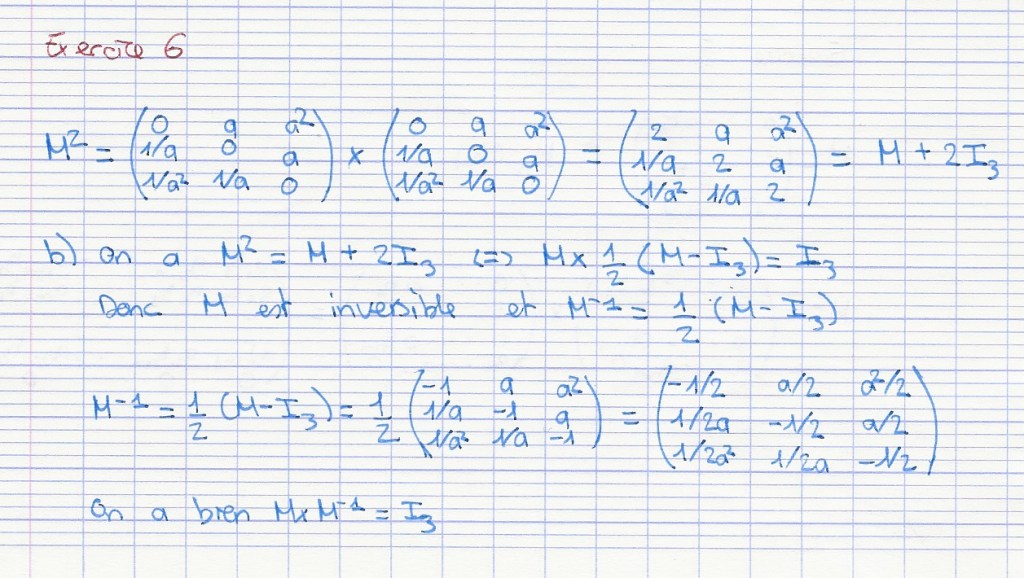 Exercice 6
M² = (0 a a² ; 1/a 0 a ; 1/a² 1/a 0) × (0 a a² ; 1/a 0 a ; 1/a² 1/a 0) = (2 a a² ; 1/a 2 a ; 1/a² 1/a 2) = M + 2I₃
b) On a M² = M + 2I₃ <=> M × 1/2 (M - I₃) = I₃
Donc M est inversible et M⁻¹ = 1/2 (M - I₃)
M⁻¹ = 1/2 (M - I₃) = 1/2 (-1 a a² ; 1/a -1 a ; 1/a² 1/a -1) = (-1/2 a/2 a²/2 ; 1/2a -1/2 a/2 ; 1/2a² 1/2a -1/2)
On a bien M × M⁻¹ = I₃